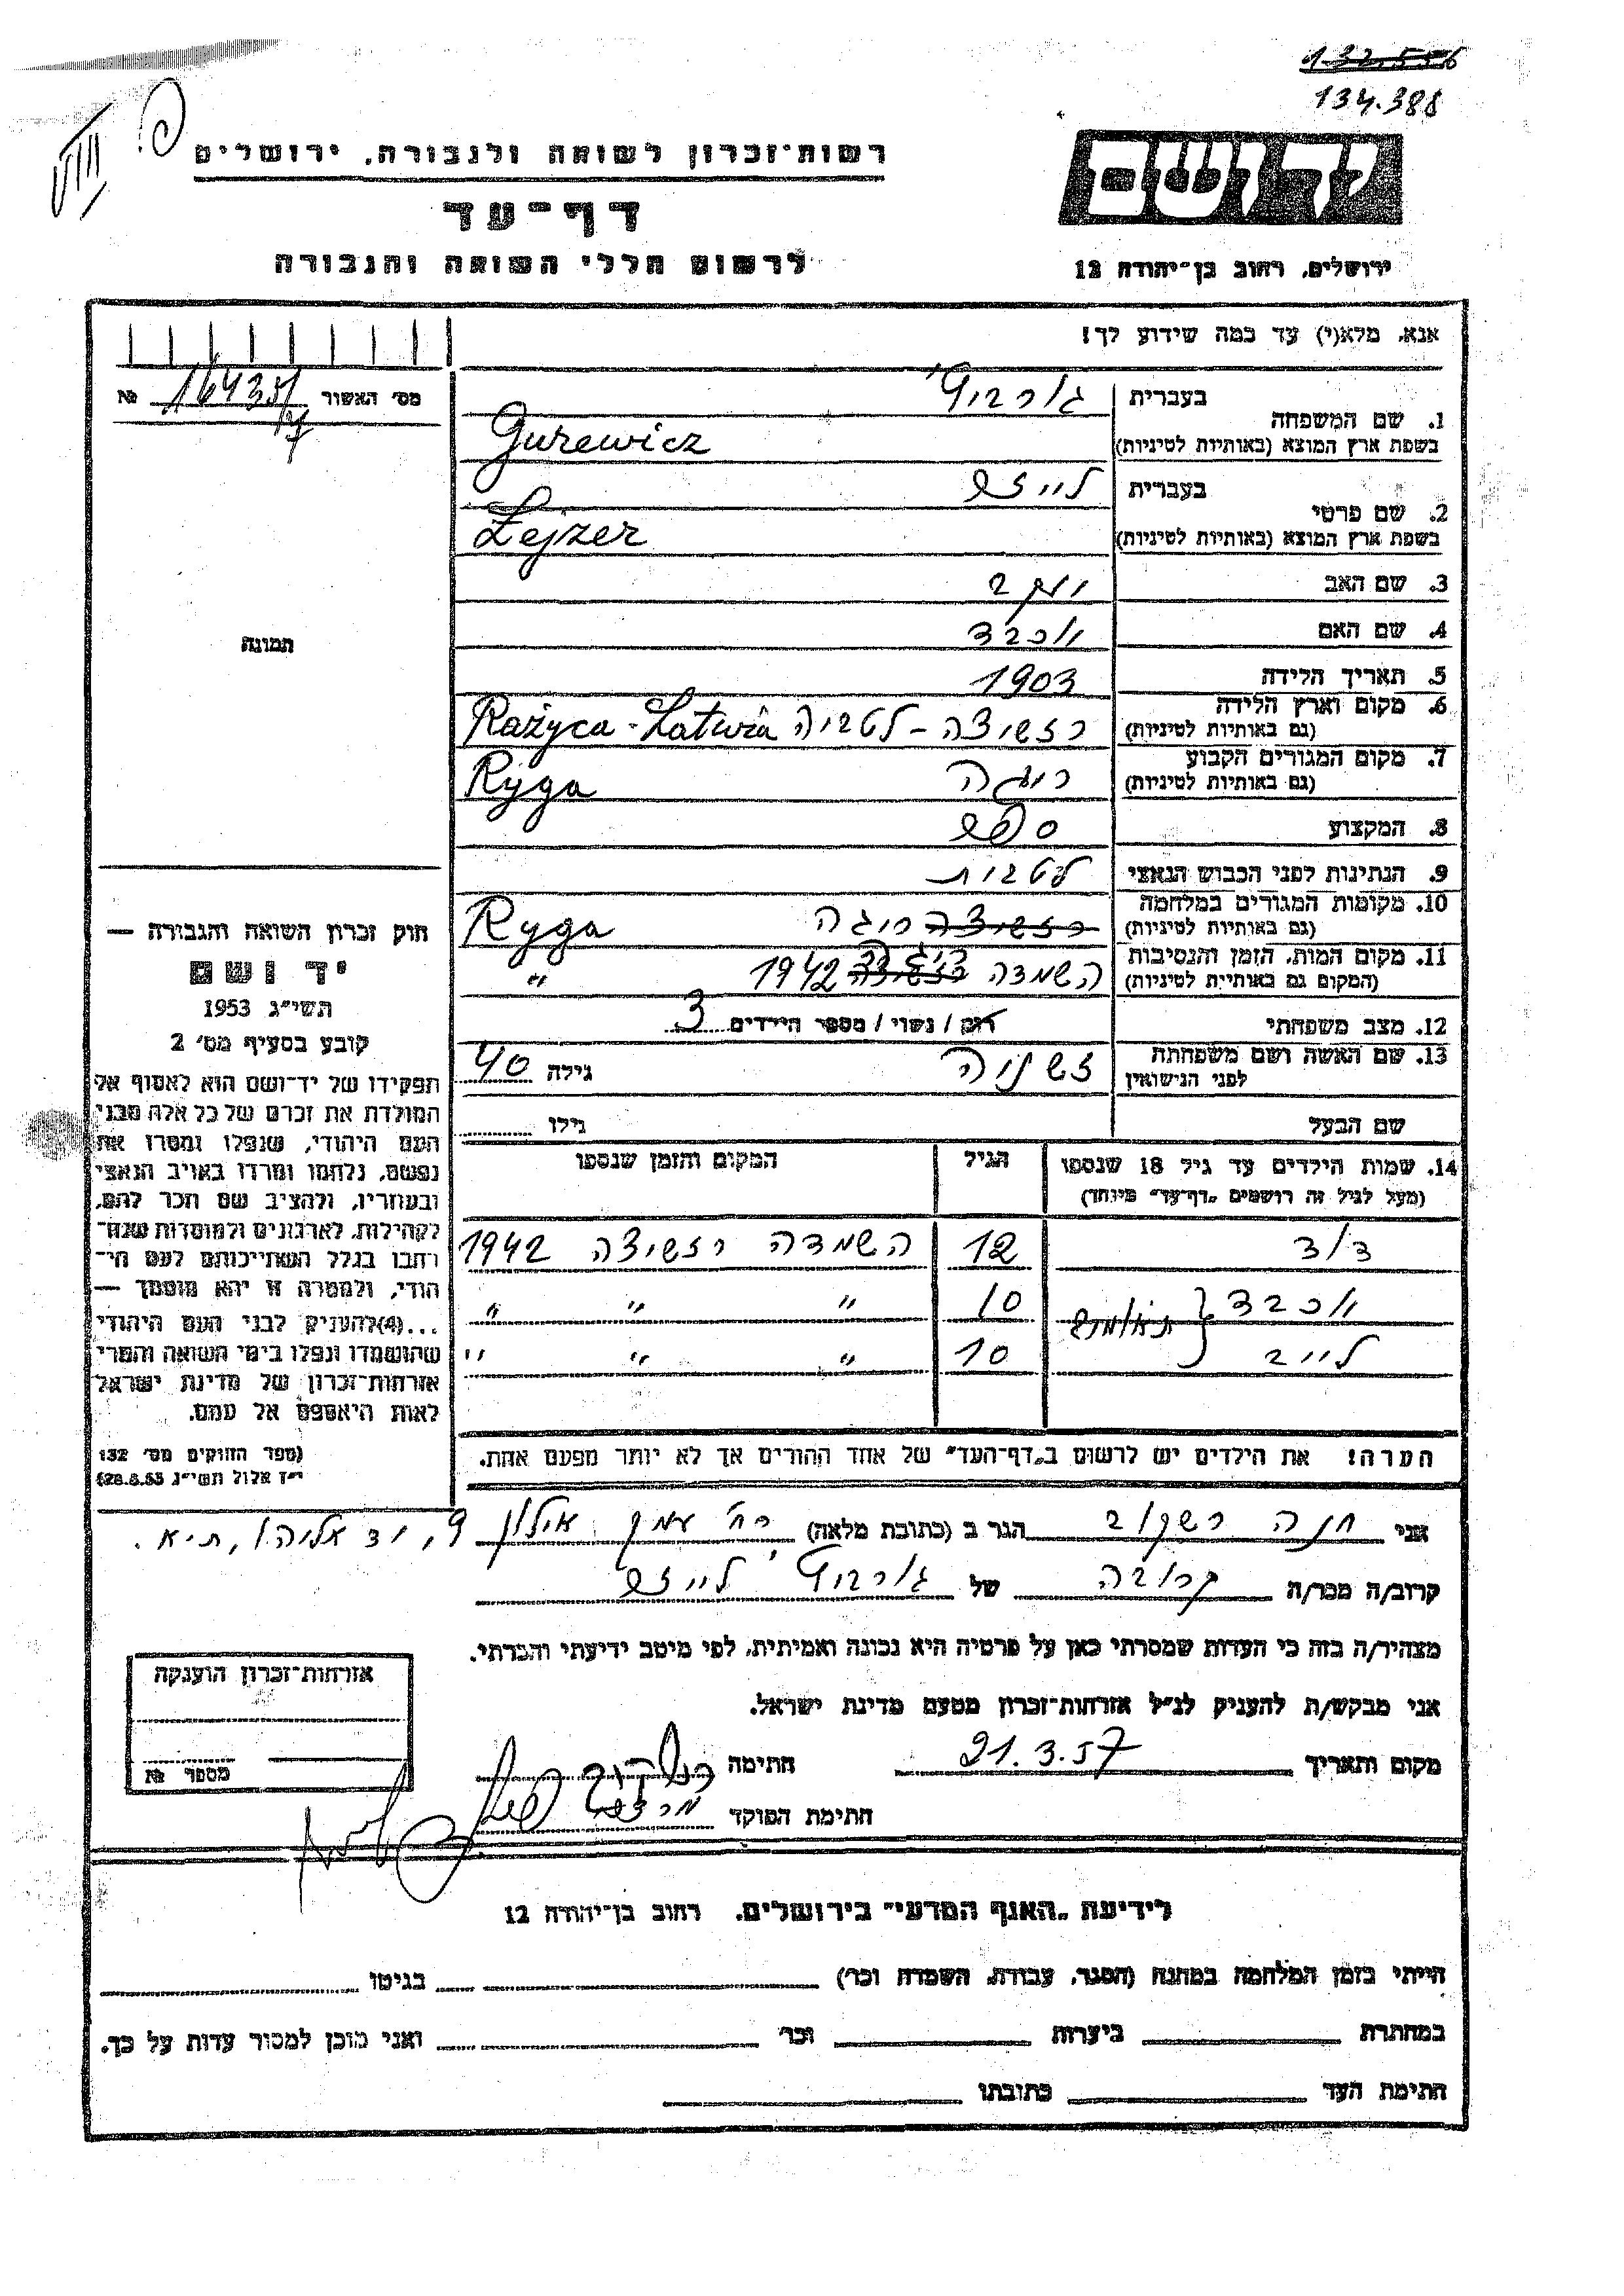 132.556
134.388
רשות־זכרון לשואה ולגבורה, ירושלים
דף־עד
לרשום חללי השואה והגבורה
יד ושם
ירושלים, רחוב בן־יהודה 12
אנא, מלא(י) עד כמה שידוע לך!
מס׳ האשור 164351/7 №
תמונה
1. שם המשפחה בעברית גורביץ'
בשפת ארץ המוצא (באותיות לטיניות) Gurewicz
2. שם פרטי בעברית לייזר
בשפת ארץ המוצא (באותיות לטיניות) Lejzer
3. שם האב יעקב
4. שם האם יוכבד
5. תאריך הלידה 1903
6. מקום וארץ הלידה (גם באותיות לטיניות) רזשיצה - לטביה Rażyca - Latwia
7. מקום המגורים הקבוע (גם באותיות לטיניות) ריגה Ryga
8. המקצוע ספר
9. הנתינות לפני הכבוש הנאצי לטבית
10. מקומות המגורים במלחמה (גם באותיות לטיניות) רזשיצה ריגה Ryga
11. מקום המות, הזמן והנסיבות (המקום גם באותיות לטיניות) השמדה רזשיצה ריגה 1942 "
12. מצב משפחתי רוק / נשוי / מספר הילדים 3
13. שם האשה ושם משפחתה לפני הנישואין גילה 40
שם הבעל גילו
14. שמות הילדים עד גיל 18 שנספו הגיל המקום והזמן שנספו
(מעל לגיל זה רושמים „דף־עד" מיוחד)
דוד 12 השמדה רזשיצה 1942
יוכבד } תאומים 10 " " "
לייב 10 " " "
הערה! את הילדים יש לרשום ב„דף־העד" של אחד ההורים אך לא יותר מפעם אחת.
חוק זכרון השואה והגבורה —
יד ושם
תשי״ג 1953
קובע בסעיף מס׳ 2
תפקידו של יד־ושם הוא לאסוף אל
המולדת את זכרם של כל אלה מבני
העם היהודי, שנפלו ומסרו את
נפשם, נלחמו ומרדו באויב הנאצי
ובעוזריו, ולהציב שם וזכר להם,
לקהילות, לארגונים ולמוסדות שנח־
רבו בגלל השתייכותם לעם הי־
הודי, ולמטרה זו יהא מוסמך —
...(4) להעניק לבני העם היהודי
שהושמדו ונפלו בימי השואה והמרי
אזרחות־זכרון של מדינת ישראל
לאות היאספם אל עמם.
(ספר החוקים מס׳ 132
י״ז אלול תשי״ג 28.8.53)
אני חנה רשקוב הגר ב (כתובת מלאה) רח' עמק אילון 9, יד אליהו, ת"א.
קרוב/ה מכר/ה קרובה של גורביץ' לייזר
מצהיר/ה בזה כי העדות שמסרתי כאן על פרטיה היא נכונה ואמיתית, לפי מיטב ידיעתי והכרתי.
אני מבקש/ת להעניק לנ״ל אזרחות־זכרון מטעם מדינת ישראל.
מקום ותאריך 21.3.57 חתימה
חתימת הפוקד
אזרחות־זכרון הוענקה
מספר №
לידיעת „האגף המדעי" בירושלים, רחוב בן־יהודה 12
הייתי בזמן המלחמה במחנה (הסגר, עבודה, השמדה וכו׳) בגיטו
במחתרת ביערות וכו׳ ואני מוכן למסור עדות על כך.
חתימת העד כתובתו